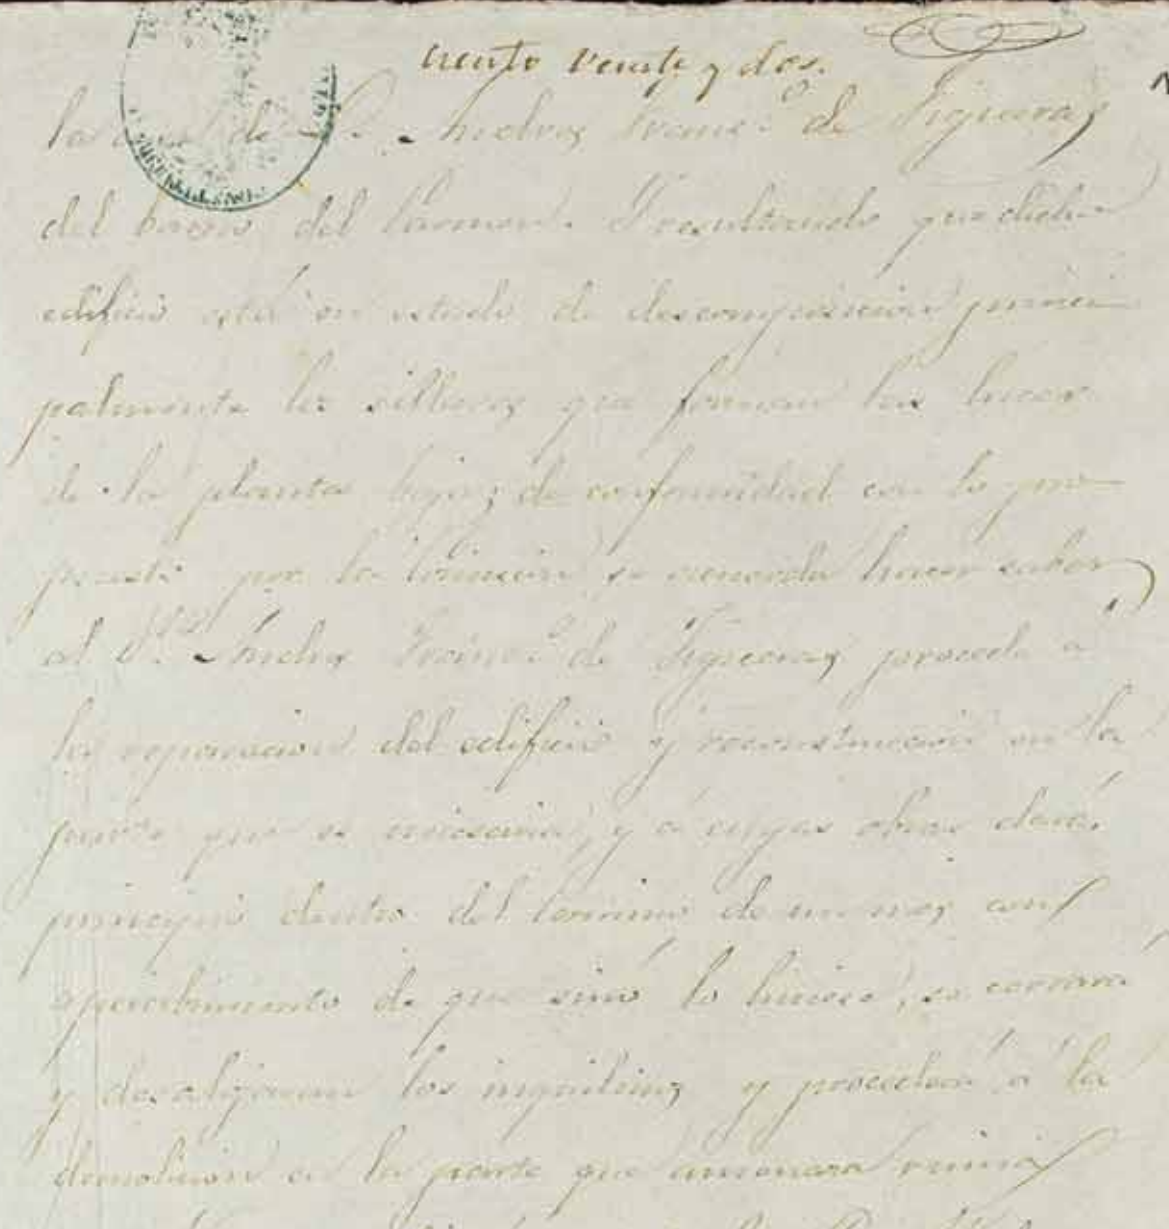 ciento veinte y dos.
la casa de D. Andres Franco de Figueras
del barrio del Carmen. Y resultando que dicho
edificio está en estado de descomposicion princi
palmente los sillares que forman los huecos
de la planta baja; de conformidad con lo pro
puesto por la Comision se acuerda hacer saber
al Sr. Andres Franco de Figueras proceda a
la reparacion del edificio y reconstruccion en la
parte que es necesaria, y á cuyas obras dará
principio dentro del termino de un mes con
apercibimiento de que sinó lo hiciese, se cerrará
y desalojaran los inquilinos y procederá á la
demolicion en la parte que amenaza ruina